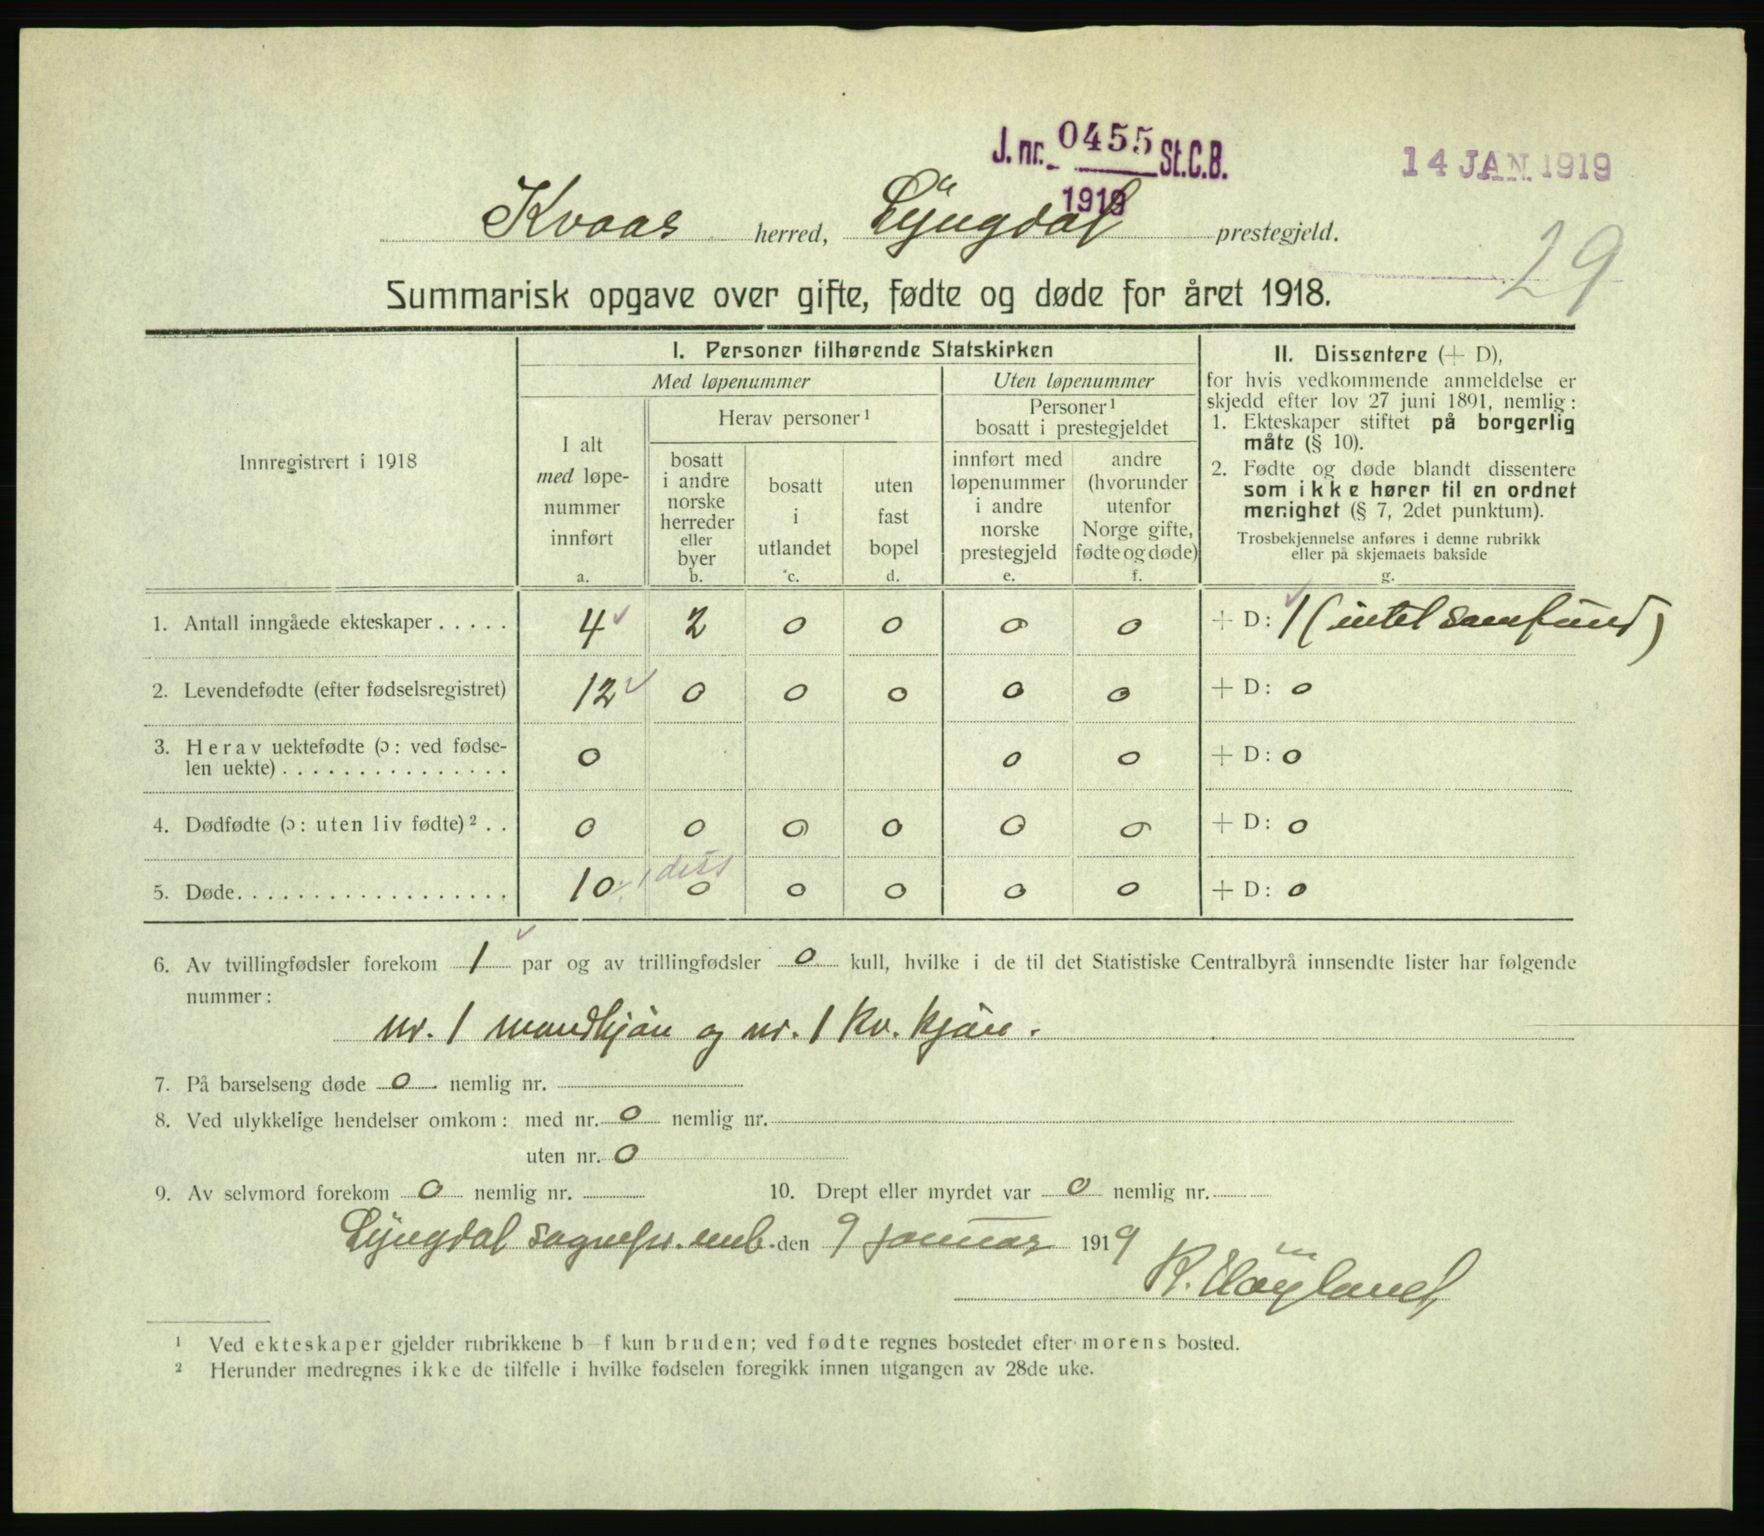 J. nr. 0455 St.C.B.
1919
14 JAN. 1919
Kvaas herred, Lyngdal prestegjeld.
29
Summarisk opgave over gifte, fødte og døde for året 1918.
Innregistrert i 1918
I. Personer tilhørende Statskirken
Med løpenummer
Uten løpenummer
I alt
med løpe-
nummer
innført
a.
Herav personer ¹
bosatt
i andre
norske
herreder
eller
byer
b.
bosatt
i
utlandet
c.
uten
fast
bopel
d.
Personer ¹
bosatt i prestegjeldet
innført med
løpenummer
i andre
norske
prestegjeld
e.
andre
(hvorunder
utenfor
Norge gifte,
fødte og døde)
f.
II. Dissentere (+ D),
for hvis vedkommende anmeldelse er
skjedd efter lov 27 juni 1891, nemlig:
1. Ekteskaper stiftet på borgerlig
måte (§ 10).
2. Fødte og døde blandt dissentere
som ikke hører til en ordnet
menighet (§ 7, 2det punktum).
Trosbekjennelse anføres i denne rubrikk
eller på skjemaets bakside
g.
1. Antall inngåede ekteskaper . . . . . 4 ✓ 2 0 0 0 0 + D: ✓ 1 (intet samfund)
2. Levendefødte (efter fødselsregistret) 12 ✓ 0 0 0 0 0 + D: 0
3. Herav uektefødte (ɔ: ved fødse-
len uekte) . . . . . . . . . . . . . . . 0 0 0 + D: 0
4. Dødfødte (ɔ: uten liv fødte) ² . . 0 0 0 0 0 0 + D: 0
5. Døde. . . . . . . . . . . . . . . . . . 10 0 0 0 0 0 + D: 0
6. Av tvillingfødsler forekom 1 ✓ par og av trillingfødsler 0 kull, hvilke i de til det Statistiske Centralbyrå innsendte lister har følgende
nummer:
nr. 1 mandkjön og nr. 1 kv. kjön.
7. På barselseng døde 0 nemlig nr.
8. Ved ulykkelige hendelser omkom: med nr. 0 nemlig nr.
uten nr. 0
9. Av selvmord forekom 0 nemlig nr. 10. Drept eller myrdet var 0 nemlig nr.
Lyngdal sognepr. emb. den 9 januar 1919
K. Höyland
¹ Ved ekteskaper gjelder rubrikkene b–f kun bruden; ved fødte regnes bostedet efter morens bosted.
² Herunder medregnes ikke de tilfelle i hvilke fødselen foregikk innen utgangen av 28de uke.